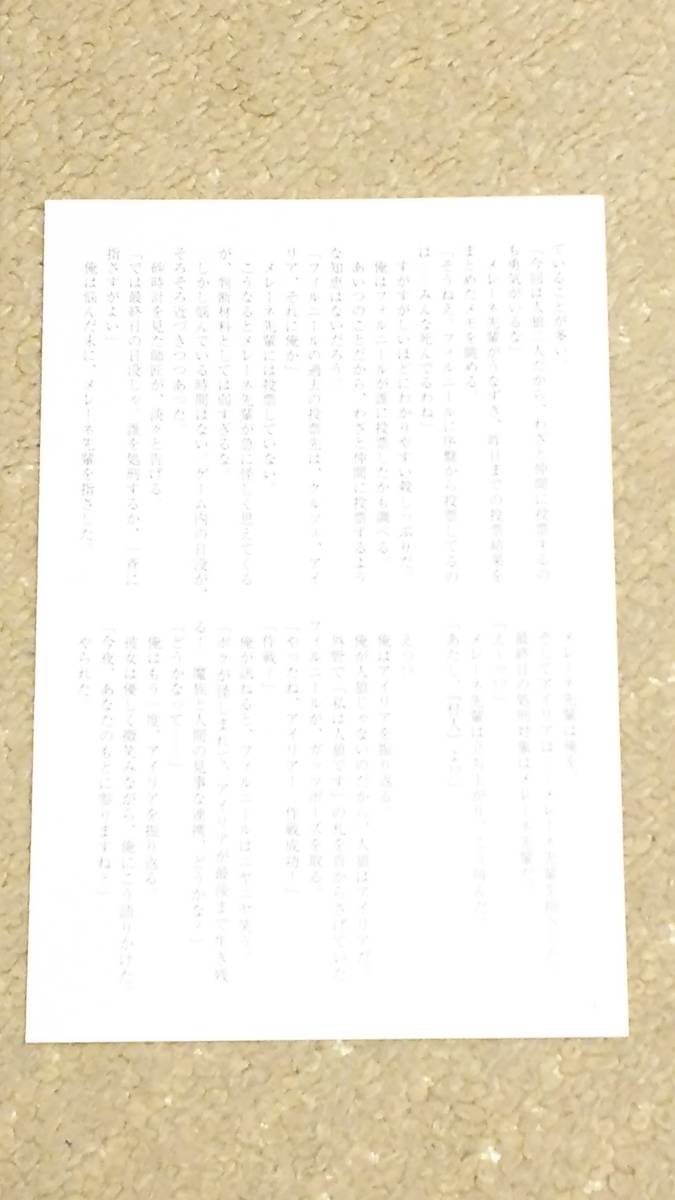 ていることが多い。
「今回は人狼一人だから、わざと仲間に投票するの
も勇気がいるな」
メレーネ先輩がうなずき、昨日までの投票結果を
まとめたメモを眺める。
「そうねえ、フィルニールに序盤から投票してるの
は……みんな死んでるわね」
すがすがしいほどにわかりやすい殺しっぷりだ。
俺はフィルニールが誰に投票したかも調べる。
あいつのことだから、わざと仲間に投票するよう
な知恵はないだろう。
「フィルニールの過去の投票先は、クルツェ、アイ
リア、それに俺か」
メレーネ先輩には投票していない。
こうなるとメレーネ先輩が急に怪しく思えてくる
が、判断材料としては弱すぎるな。
しかし悩んでいる時間はない。ゲーム内の日没が、
そろそろ近づきつつあった。
砂時計を見た師匠が、淡々と告げる。
「では最終日の日没じゃ。誰を処刑するか、一斉に
指さすがよい」
俺は悩んだ末に、メレーネ先輩を指さした。
メレーネ先輩は俺を。
そしてアイリアは……メレーネ先輩を
最終日の処刑対象はメレーネ先輩だ。
「えーっ!?」
メレーネ先輩は立ち上がり、こう叫んだ。
「あたし、『村人』よ!?」
えっ?
俺はアイリアを振り返る。
俺が人狼じゃないのだから、人狼はアイリアだ。
外野で「私は人狼です」の札を首からさげていた
フィルニールが、ガッツポーズを取る。
「やったね、アイリア! 作戦成功!」
「作戦?」
俺が訊ねると、フィルニールはニヤニヤ笑う。
「ボクが怪しまれて、アイリアが最後まで生き残
る! 魔族と人間の見事な連携、どうかな?」
「どうかなって……」
俺はもう一度、アイリアを振り返る。
彼女は優しく微笑みながら、俺にこう語りかけた。
「今夜、あなたのもとに参りますね?」
やられた。